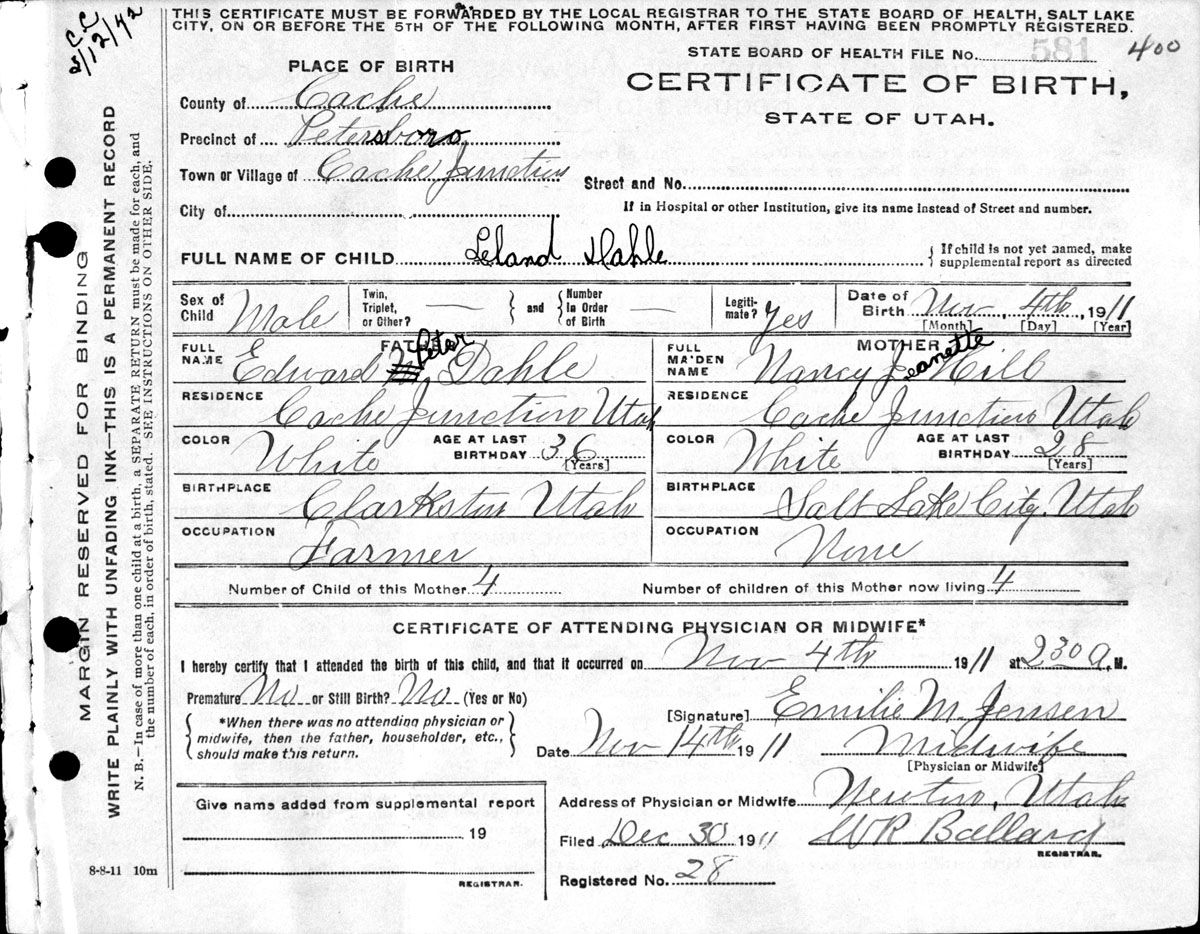 C.C.
2/12/42
THIS CERTIFICATE MUST BE FORWARDED BY THE LOCAL REGISTRAR TO THE STATE BOARD OF HEALTH, SALT LAKE
CITY, ON OR BEFORE THE 5TH OF THE FOLLOWING MONTH, AFTER FIRST HAVING BEEN PROMPTLY REGISTERED.
STATE BOARD OF HEALTH FILE No. 581 400
PLACE OF BIRTH
CERTIFICATE OF BIRTH,
STATE OF UTAH.
County of Cache
Precinct of Petersboro
Town or Village of Cache Junction
Street and No.
City of
If in Hospital or other Institution, give its name instead of Street and number.
FULL NAME OF CHILD Leland Dahle
{ If child is not yet named, make
supplemental report as directed
Sex of Child Male
Twin, Triplet, or Other? —
} and { Number in Order of Birth —
Legiti-mate? Yes
Date of Birth Nov. 4th, 1911
[Month] [Day] [Year]
FATHER
FULL NAME Edward Peter Dahle
RESIDENCE Cache Junction Utah
COLOR White AGE AT LAST BIRTHDAY 36 [Years]
BIRTHPLACE Clarkston Utah
OCCUPATION Farmer
MOTHER
FULL MAIDEN NAME Nancy Jeanette Hill
RESIDENCE Cache Junction Utah
COLOR White AGE AT LAST BIRTHDAY 28 [Years]
BIRTHPLACE Salt Lake City, Utah
OCCUPATION None
Number of Child of this Mother 4 Number of children of this Mother now living 4
CERTIFICATE OF ATTENDING PHYSICIAN OR MIDWIFE*
I hereby certify that I attended the birth of this child, and that it occurred on Nov 4th 1911 at 2 30 A. M.
Premature No or Still Birth? No (Yes or No)
{ *When there was no attending physician or
midwife, then the father, householder, etc.,
should make this return. }
[Signature] Emilie M. Jensen
Date Nov 14th 1911 Midwife
[Physician or Midwife]
Give name added from supplemental report
19
REGISTRAR.
Address of Physician or Midwife Newton, Utah
Filed Dec 30 1911 W R Ballard
REGISTRAR.
Registered No. 28
8-8-11 10m
MARGIN RESERVED FOR BINDING
WRITE PLAINLY WITH UNFADING INK—THIS IS A PERMANENT RECORD
N. B.—In case of more than one child at a birth, a SEPARATE RETURN must be made for each, and
the number of each, in order of birth, stated. SEE INSTRUCTIONS ON OTHER SIDE.